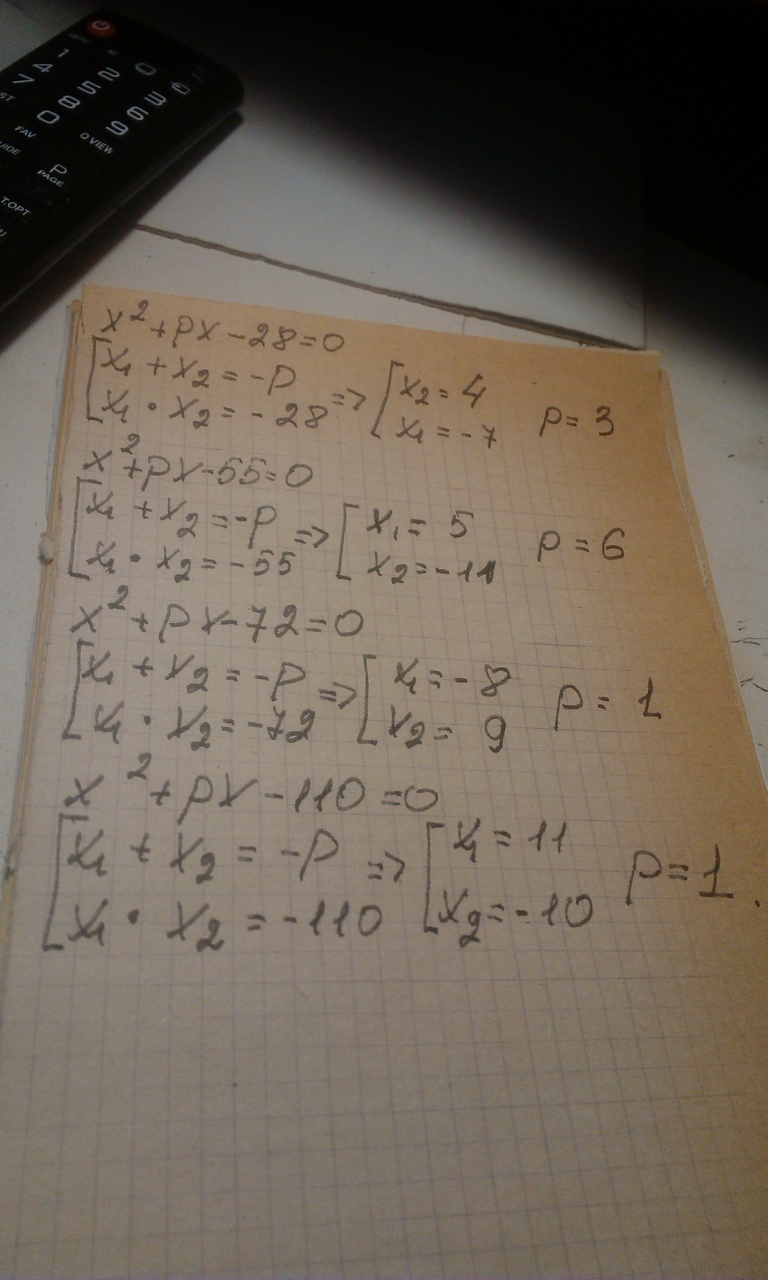 1 2 3
4 5 6
7 8 9
0
FAV
Q.VIEW
P
PAGE
T.OPT
x² + px - 28 = 0
[x₁ + x₂ = -p
[x₁ · x₂ = -28 => [x₂ = 4
[x₁ = -7
p = 3
x² + px - 55 = 0
[x₁ + x₂ = -p
[x₁ · x₂ = -55 => [x₁ = 5
[x₂ = -11
p = 6
x² + px - 72 = 0
[x₁ + x₂ = -p
[x₁ · x₂ = -72 => [x₁ = -8
[x₂ = 9
p = 1
x² + px - 110 = 0
[x₁ + x₂ = -p
[x₁ · x₂ = -110 => [x₁ = 11
[x₂ = -10
p = 1.